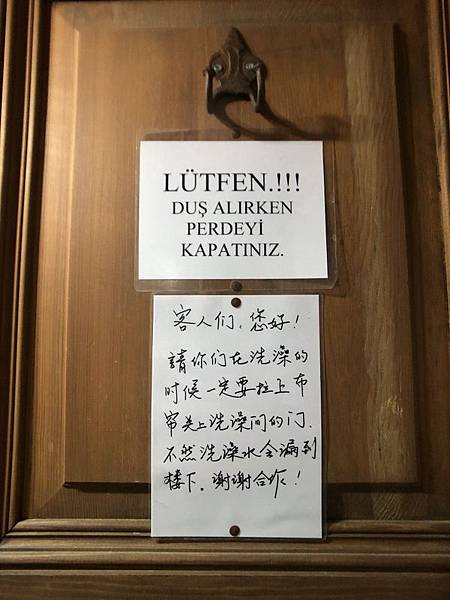 LÜTFEN.!!!
DUŞ ALIRKEN
PERDEYİ
KAPATINIZ.
客人们，您好！
請你们在洗澡的
时候一定要拉上布
帘关上洗澡间的门.
不然洗澡水会漏到
楼下。谢谢合作！